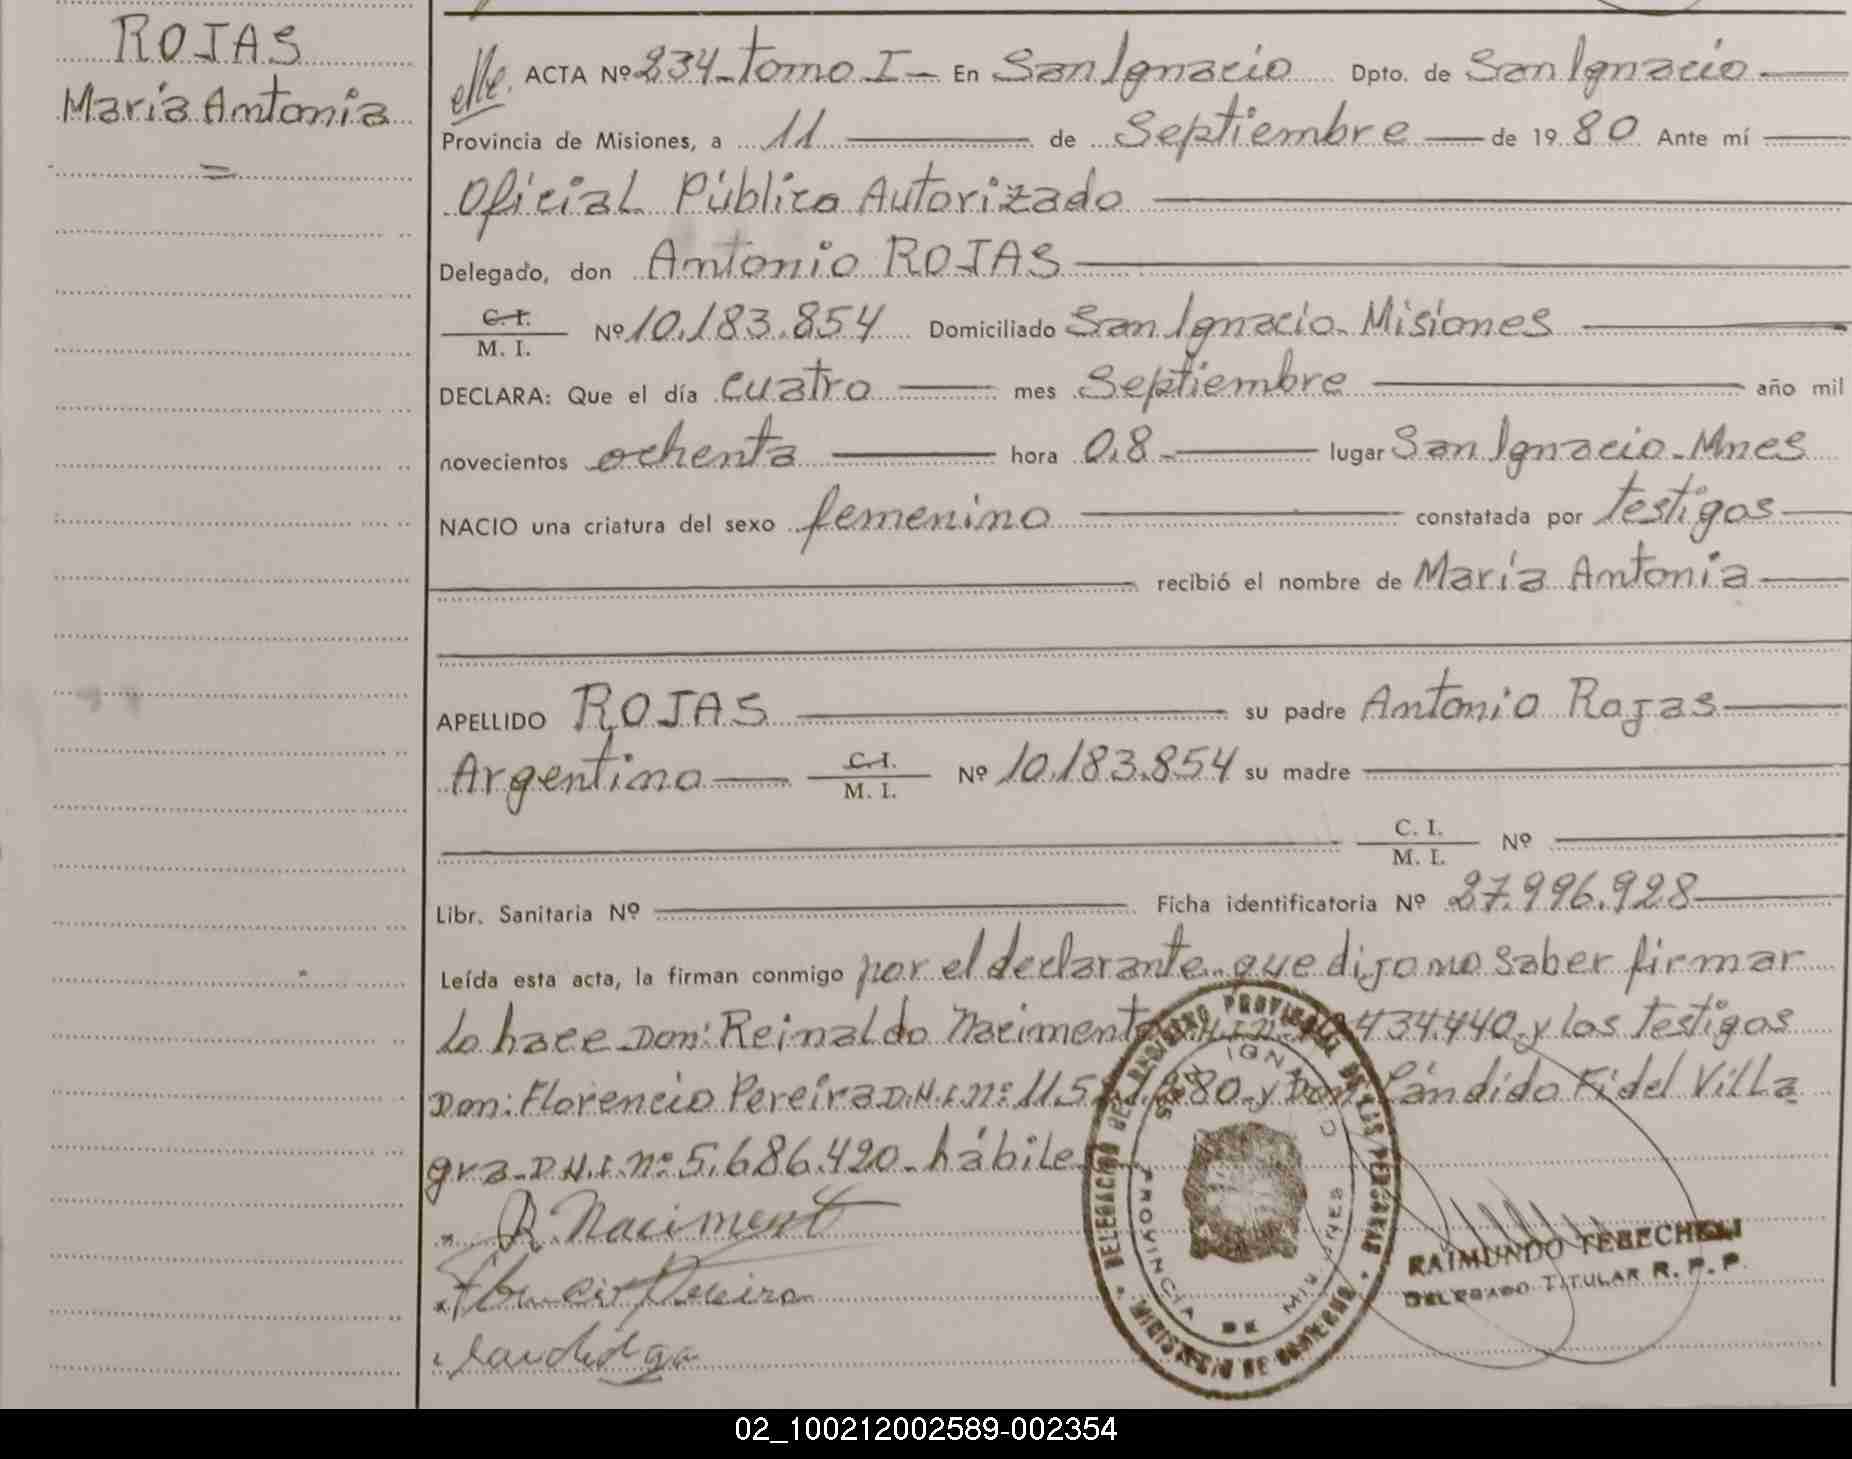 ROJAS
María Antonia
=
ACTA Nº 234 - tomo I - En San Ignacio Dpto. de San Ignacio
Provincia de Misiones, a 11 de Septiembre de 19 80 Ante mí
Oficial Público Autorizado
Delegado, don Antonio ROJAS
C. I.
M. I. Nº 10.183.854 Domiciliado San Ignacio. Misiones
DECLARA: Que el día cuatro mes Septiembre año mil
novecientos ochenta hora 0,8 - lugar San Ignacio - Mnes
NACIO una criatura del sexo femenino constatada por testigos
recibió el nombre de María Antonia
APELLIDO ROJAS su padre Antonio Rojas
Argentino C. I. M. I. Nº 10.183.854 su madre
C. I. M. I. Nº
Libr. Sanitaria Nº Ficha identificatoria Nº 27.996.928
Leída esta acta, la firman conmigo por el declarante que dijo no saber firmar
lo hace Don: Reinaldo Nacimento 434.440 y los testigos
Don: Florencio Pereira D.N.I. nº: 11.5 280 - y Don Cándido Fidel Villa
gra - D.N.I. nº: 5.686.420 - hábile
R. Naciment
Pereira
DELEGACION DEL REGISTRO PROVINCIAL DE LAS PERSONAS
MINISTERIO DE GOBIERNO
SAN IGNACIO
PROVINCIA DE MISIONES
RAIMUNDO TEBECHELI
DELEGADO TITULAR R. P. P.
02_100212002589-002354